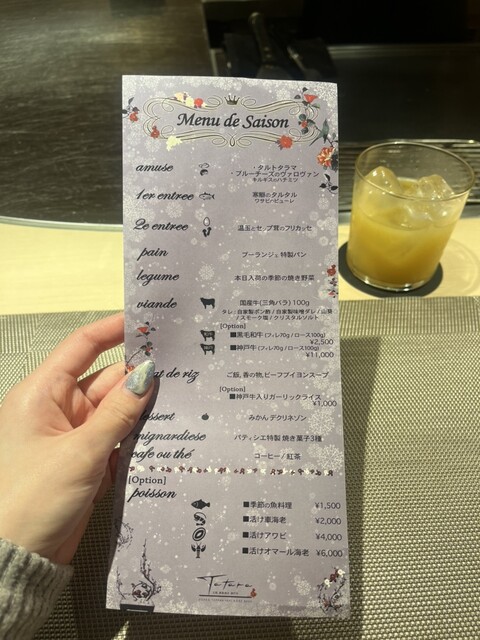 Menu de Saison
amuse
・タルトタラマ
・ブルーチーズのヴァロヴァン
キルギスのハチミツ
1er entree
寒鰤のタルタル
ワサビピューレ
2e entree
温玉とセップ茸のフリカッセ
pain
ブーランジェ 特製パン
legume
本日入荷の季節の焼き野菜
viande
国産牛(三角バラ) 100g
タレ：自家製ポン酢 / 自家製味噌ダレ / 山葵
/ スモーク塩 / クリスタルソルト
[Option]
■黒毛和牛 (フィレ70g / ロース100g)
¥2,500
■神戸牛 (フィレ70g / ロース100g)
¥11,000
at de riz
ご飯, 香の物, ビーフブイヨンスープ
[Option]
■神戸牛入りガーリックライス
¥1,000
dessert
みかん デクリネゾン
mignardiese
パティシエ特製 焼き菓子3種
cafe ou thé
コーヒー / 紅茶
[Option]
poisson
■季節の魚料理 ¥1,500
■活け車海老 ¥2,000
■活けアワビ ¥4,000
■活けオマール海老 ¥6,000